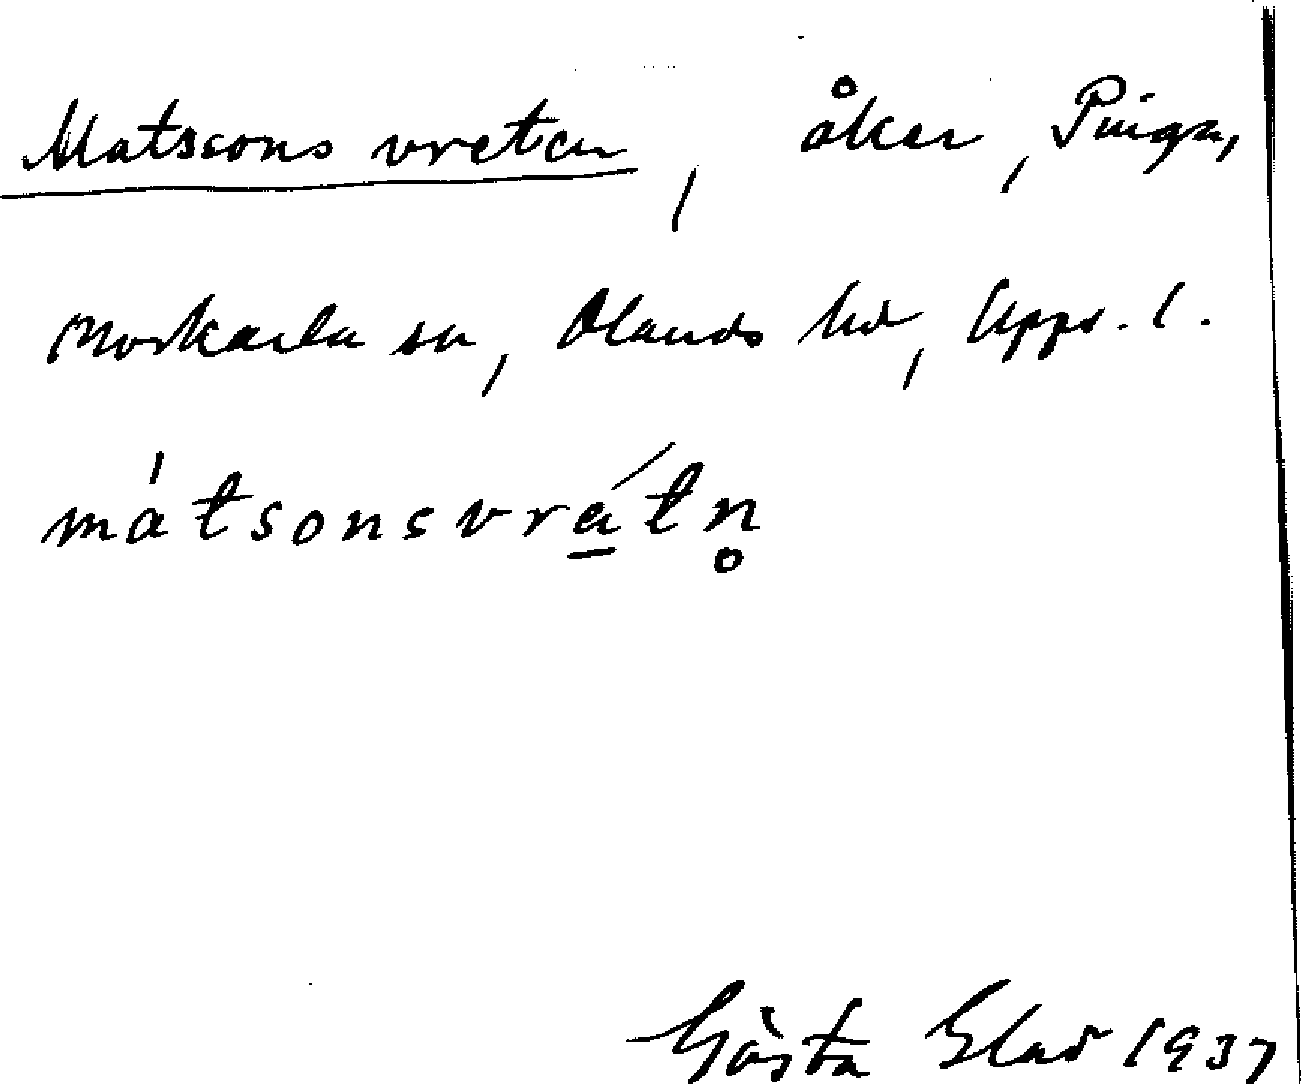 Matssons vreten, åker, Pinga,
Morkarla sn, Olands hd, Upps. l.
mátsonsvrá̱tn̥
Gösta Elad 1937